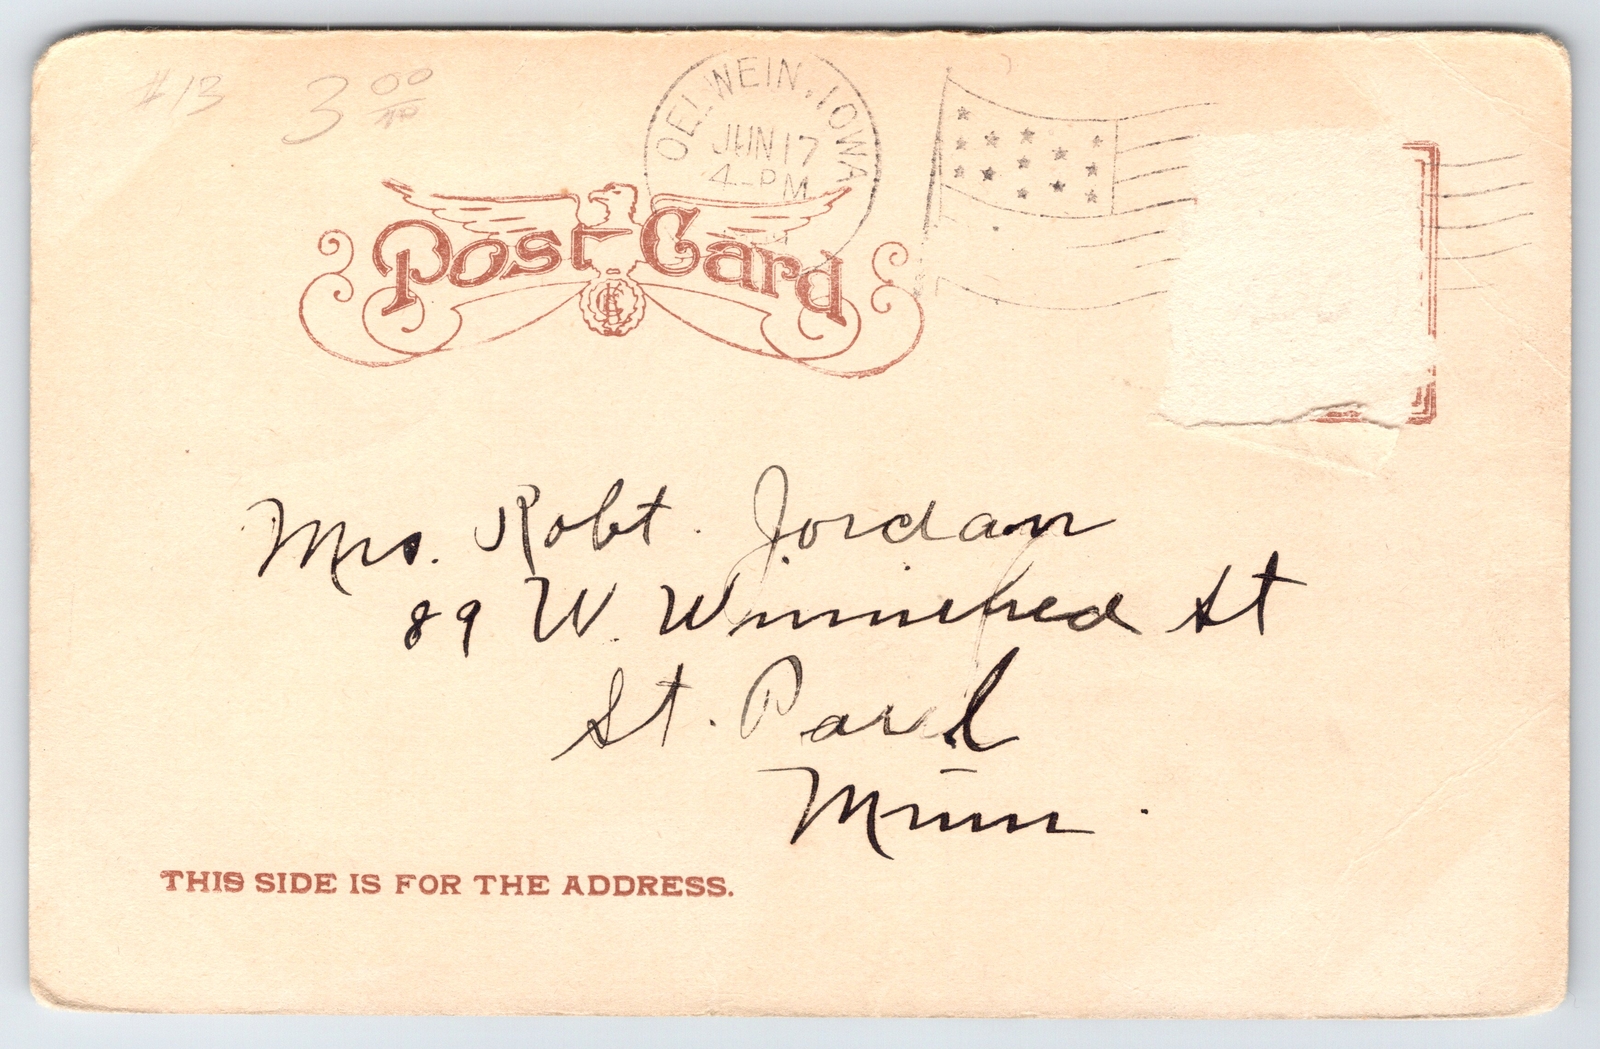 #13 3 00
OELWEIN, IOWA
JUN 17
4-PM
Post Card
Mrs. Robt. Jordan
89 W. Winnifred St
St. Paul
Minn.
THIS SIDE IS FOR THE ADDRESS.